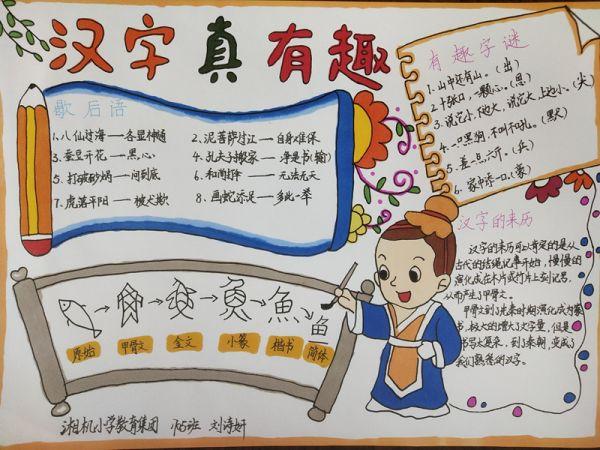 汉字真有趣
歇后语
1.八仙过海——各显神通
2.泥菩萨过江——自身难保
3.蚕豆开花——黑心
4.孔夫子搬家——净是书(输)
5.打破砂锅——问到底
6.和尚打伞——无法无天
7.虎落平阳——被犬欺
8.画蛇添足——多此一举
有趣字谜
1.山中还有山。(出)
2.十张口,一颗心。(思)
3.说它小,下边大,说它大,上边小。(尖)
4.一口黑狗,不叫不吼。(默)
5.差一点六斤。(兵)
6.家中添一口。(豪)
汉字的来历
汉字的来历可以肯定的是从
古代的结绳记事开始,慢慢的
演化成在木片或竹片上刻记号,
从而产生了甲骨文。
甲骨文到了先秦时期演化成为篆
书,极大的增大了文字量,但是
书写太复杂,到了秦朝,变成了
我们熟悉的汉字。
魚
鱼
原始
甲骨文
金文
小篆
楷书
简体
湘机小学教育集团 165班 刘诗妍